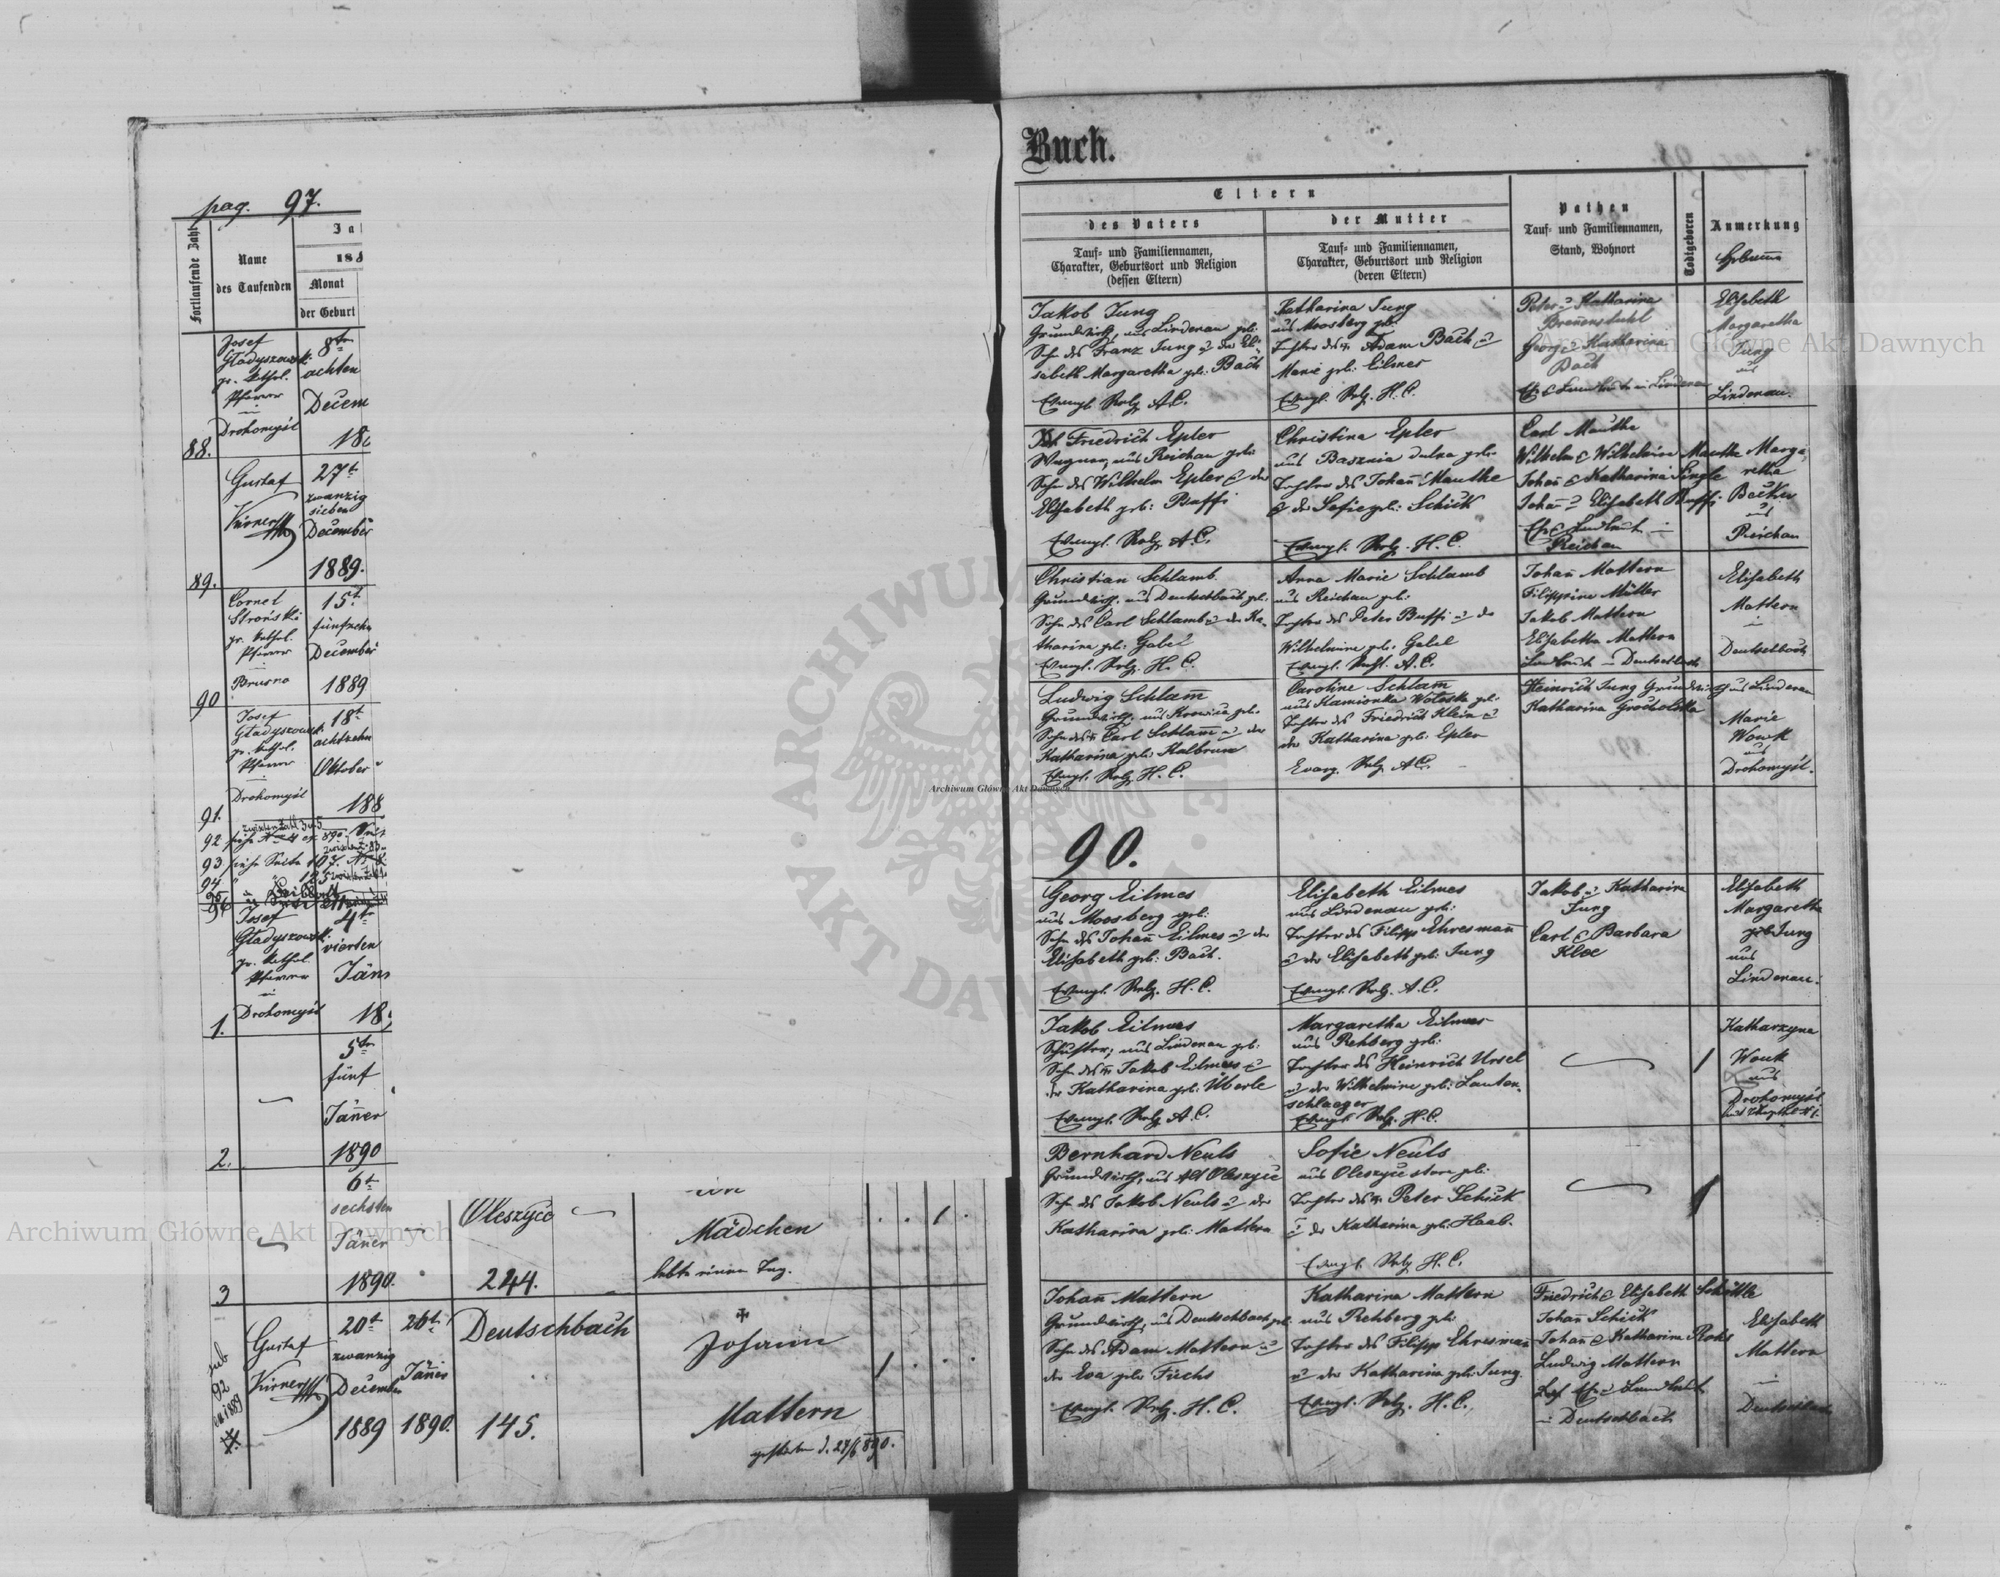 pag. 97.
Fortlaufende Zahl
Name
des Taufenden
Ja
188
Monat
der Geburt
Josef
Gładyszowski
gr. kathol.
Pfarrer
in
Drohomyśl
88.
8ten
achten
Decem
18
Gustaf
Kirner
89.
27t
zwanzig
sieben
December
1889.
Cornel
Stroński
gr. kathol.
Pfarrer
in
Brusno
90
15t
fünfzehn
December
1889
Josef
Gładyszowski
gr. kathol.
Pfarrer
in
Drohomyśl
91.
18t
achtzehn
Oktober
188
92 siehe
93 siehe Seite 107.
94
Josef
Gładyszowski
gr. kathol.
Pfarrer
in
Drohomyśl
1.
4te
vierten
Jän
18
2.
5te
fünf
Jänner
1890
3
6t
sechsten
Jäner
1890.
Oleszyce
244.
Mädchen
lebte einen Tag.
1
sub
92
ex 1889
Gustaf
Kirner
20t
zwanzig
December
1889
26t
Jäner
1890.
Deutschbach
145.
Johann
Mattern
gestorben d. 27/6 890.
1
Buch.
Eltern
des Vaters
Tauf- und Familiennamen,
Charakter, Geburtsort und Religion
(dessen Eltern)
der Mutter
Tauf- und Familiennamen,
Charakter, Geburtsort und Religion
(deren Eltern)
Pathen
Tauf- und Familiennamen,
Stand, Wohnort
Todtgeboren
Anmerkung
Hebamme
Jakob Jung
Grundwirth, aus Lindenau geb.
Sohn des Franz Jung u. der Eli-
sabeth Margaretha geb. Bach
Evangl. Relg. A.C.
Katharina Jung
aus Moosberg geb.
Tochter des Adam Bach u
Marie geb. Eilmes
Evangl. Relg. H.C.
Peter u Katharina
Brennenstuhl
Georg u Katharina
Bach
Elisabeth
Margaretha
Jung
aus
Lindenau.
Friedrich Epler
Wagner, aus Reichau geb.
Sohn des Wilhelm Epler u der
Elisabeth geb. Buffi
Evangl. Relg. A.C.
Christina Epler
aus Basznia dolna geb.
Tochter des Johann Mauthe
u der Sofie geb. Schick
Evangl. Relg. H.C.
Carl Mauthe
Wilhelm & Wilhelmine Mauthe
Johann & Katharina Lingle
Johann u Elisabeth Buffi
Reichau
Marga
retha
Becker
aus
Reichau
Christian Schlamb
Grundwirth, aus Deutschbach geb.
Sohn des Carl Schlamb u der Ka-
tharina geb. Gabel
Evangl. Relg. H.C.
Anna Marie Schlamb
aus Reichau geb.
Tochter des Peter Buffi u der
Wilhelmine geb. Gabel
Evangl. Relg. A.C.
Johann Mattern
Filippine Müller
Jakob Mattern
Elisabetha Mattern
Landleute in Deutschbach
Elisabeth
Mattern
in
Deutschbach
Ludwig Schlam
Grundwirth, aus Krowica geb.
Sohn des Carl Schlam u der
Katharina geb. Kalbrun
Evangl. Relg. H.C.
Caroline Schlam
aus Kamionka Wołoska geb.
Tochter des Friedrich Klein u
der Katharina geb. Epler
Evang. Relg. A.C.
Heinrich Jung Grundwirth aus Lindenau
Katharina Grocholska
Marie
Wowk
aus
Drohomyśl.
90.
Georg Eilmes
aus Moosberg geb.
Sohn des Johann Eilmes u der
Elisabeth geb. Bach.
Evangl. Relg. H.C.
Elisabeth Eilmes
aus Lindenau geb.
Tochter des Filipp Ehresmann
u der Elisabeth geb. Jung
Evangl. Relg. A.C.
Jakob u Katharina
Jung
Carl & Barbara
Klee
Elisabeth
Margaretha
geb Jung
aus
Lindenau.
Jakob Eilmes
Schuster, aus Lindenau geb.
Sohn des Jakob Eilmes u
der Katharina geb. Überle
Evangl. Relg. A.C.
Margaretha Eilmes
aus Rehberg geb.
Tochter des Heinrich Ursel
u der Wilhelmine geb. Lauten-
schlaeger
Evangl. Relg. H.C.
1
Katharzyna
Wowk
aus
Drohomyśl
Bernhard Neuls
Grundwirth, aus Alt Oleszyce
Sohn des Jakob Neuls u der
Katharina geb. Mattern
Sofie Neuls
aus Oleszyce stare geb.
Tochter des Peter Schick
u der Katharina geb. Haab.
Evangl. Relg. H.C.
1
Johann Mattern
Grundwirth, aus Deutschbach geb.
Sohn des Adam Mattern u
der Eva geb. Fuchs
Evangl. Relg. H.C.
Katharina Mattern
aus Rehberg geb.
Tochter des Filipp Ehresmann
u der Katharina geb. Jung.
Evangl. Relg. H.C.
Friedrich & Elisabeth Schüttle
Johann Schick
Johann & Katharina Roks
Ludwig Mattern
in Deutschbach
Elisabeth
Mattern
in
Deutschbach
Archiwum Główne Akt Dawnych
Archiwum Główne Akt Dawnych
Archiwum Główne Akt Dawnych